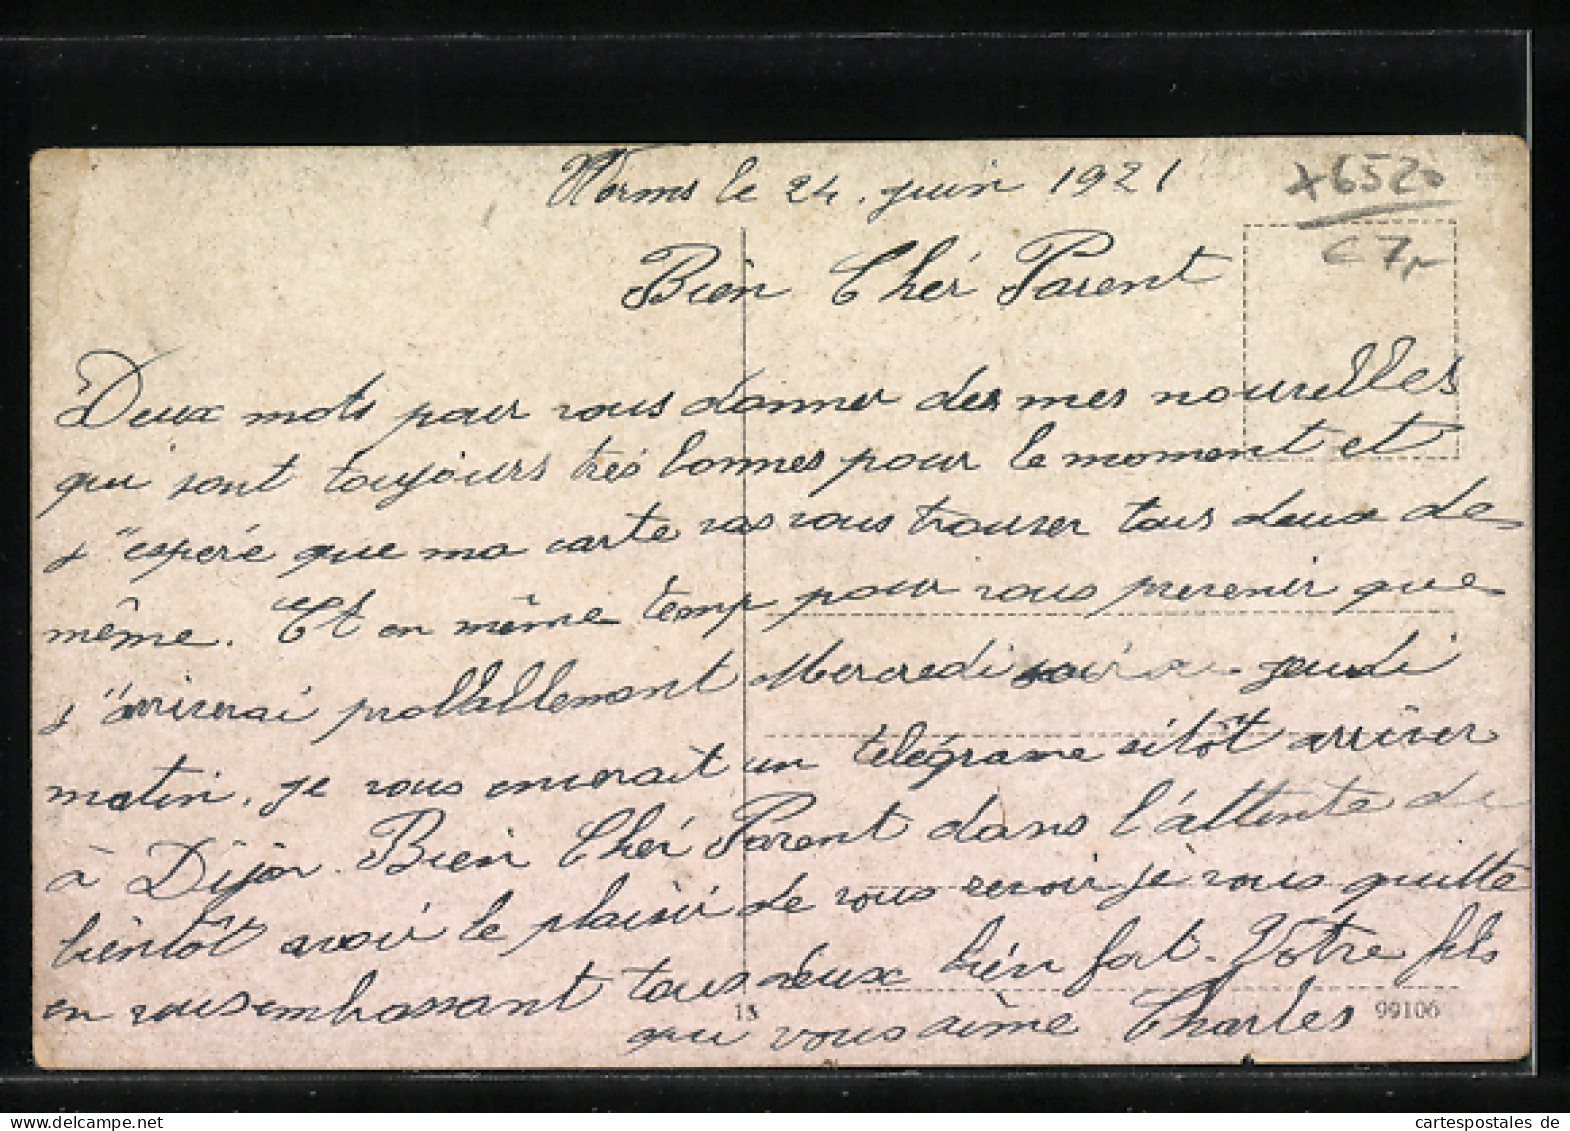 Worms le 24. juin 1921
x6520
C7,-
Bien Chér Parent
Deux mots pour vous donner des mes nouvelles
qui sont toujours trés bonnes pour le moment et
j'esperé que ma carte vas vous trouver tous deux de
même. Et en même temp pour vous prevenir que
j'arriverai proballement Mercredi soir jeudi
matin. je vous enverait un telégrame sitôt arriver
à Dijon. Bien Chér Parent dans l'attente de
bientôt avoir le plaisir de vous revoir je vous quitte
en vous embrassant tous deux bien fort. Votre fils
qui vous aime Charles
15
99106
cartespostales de